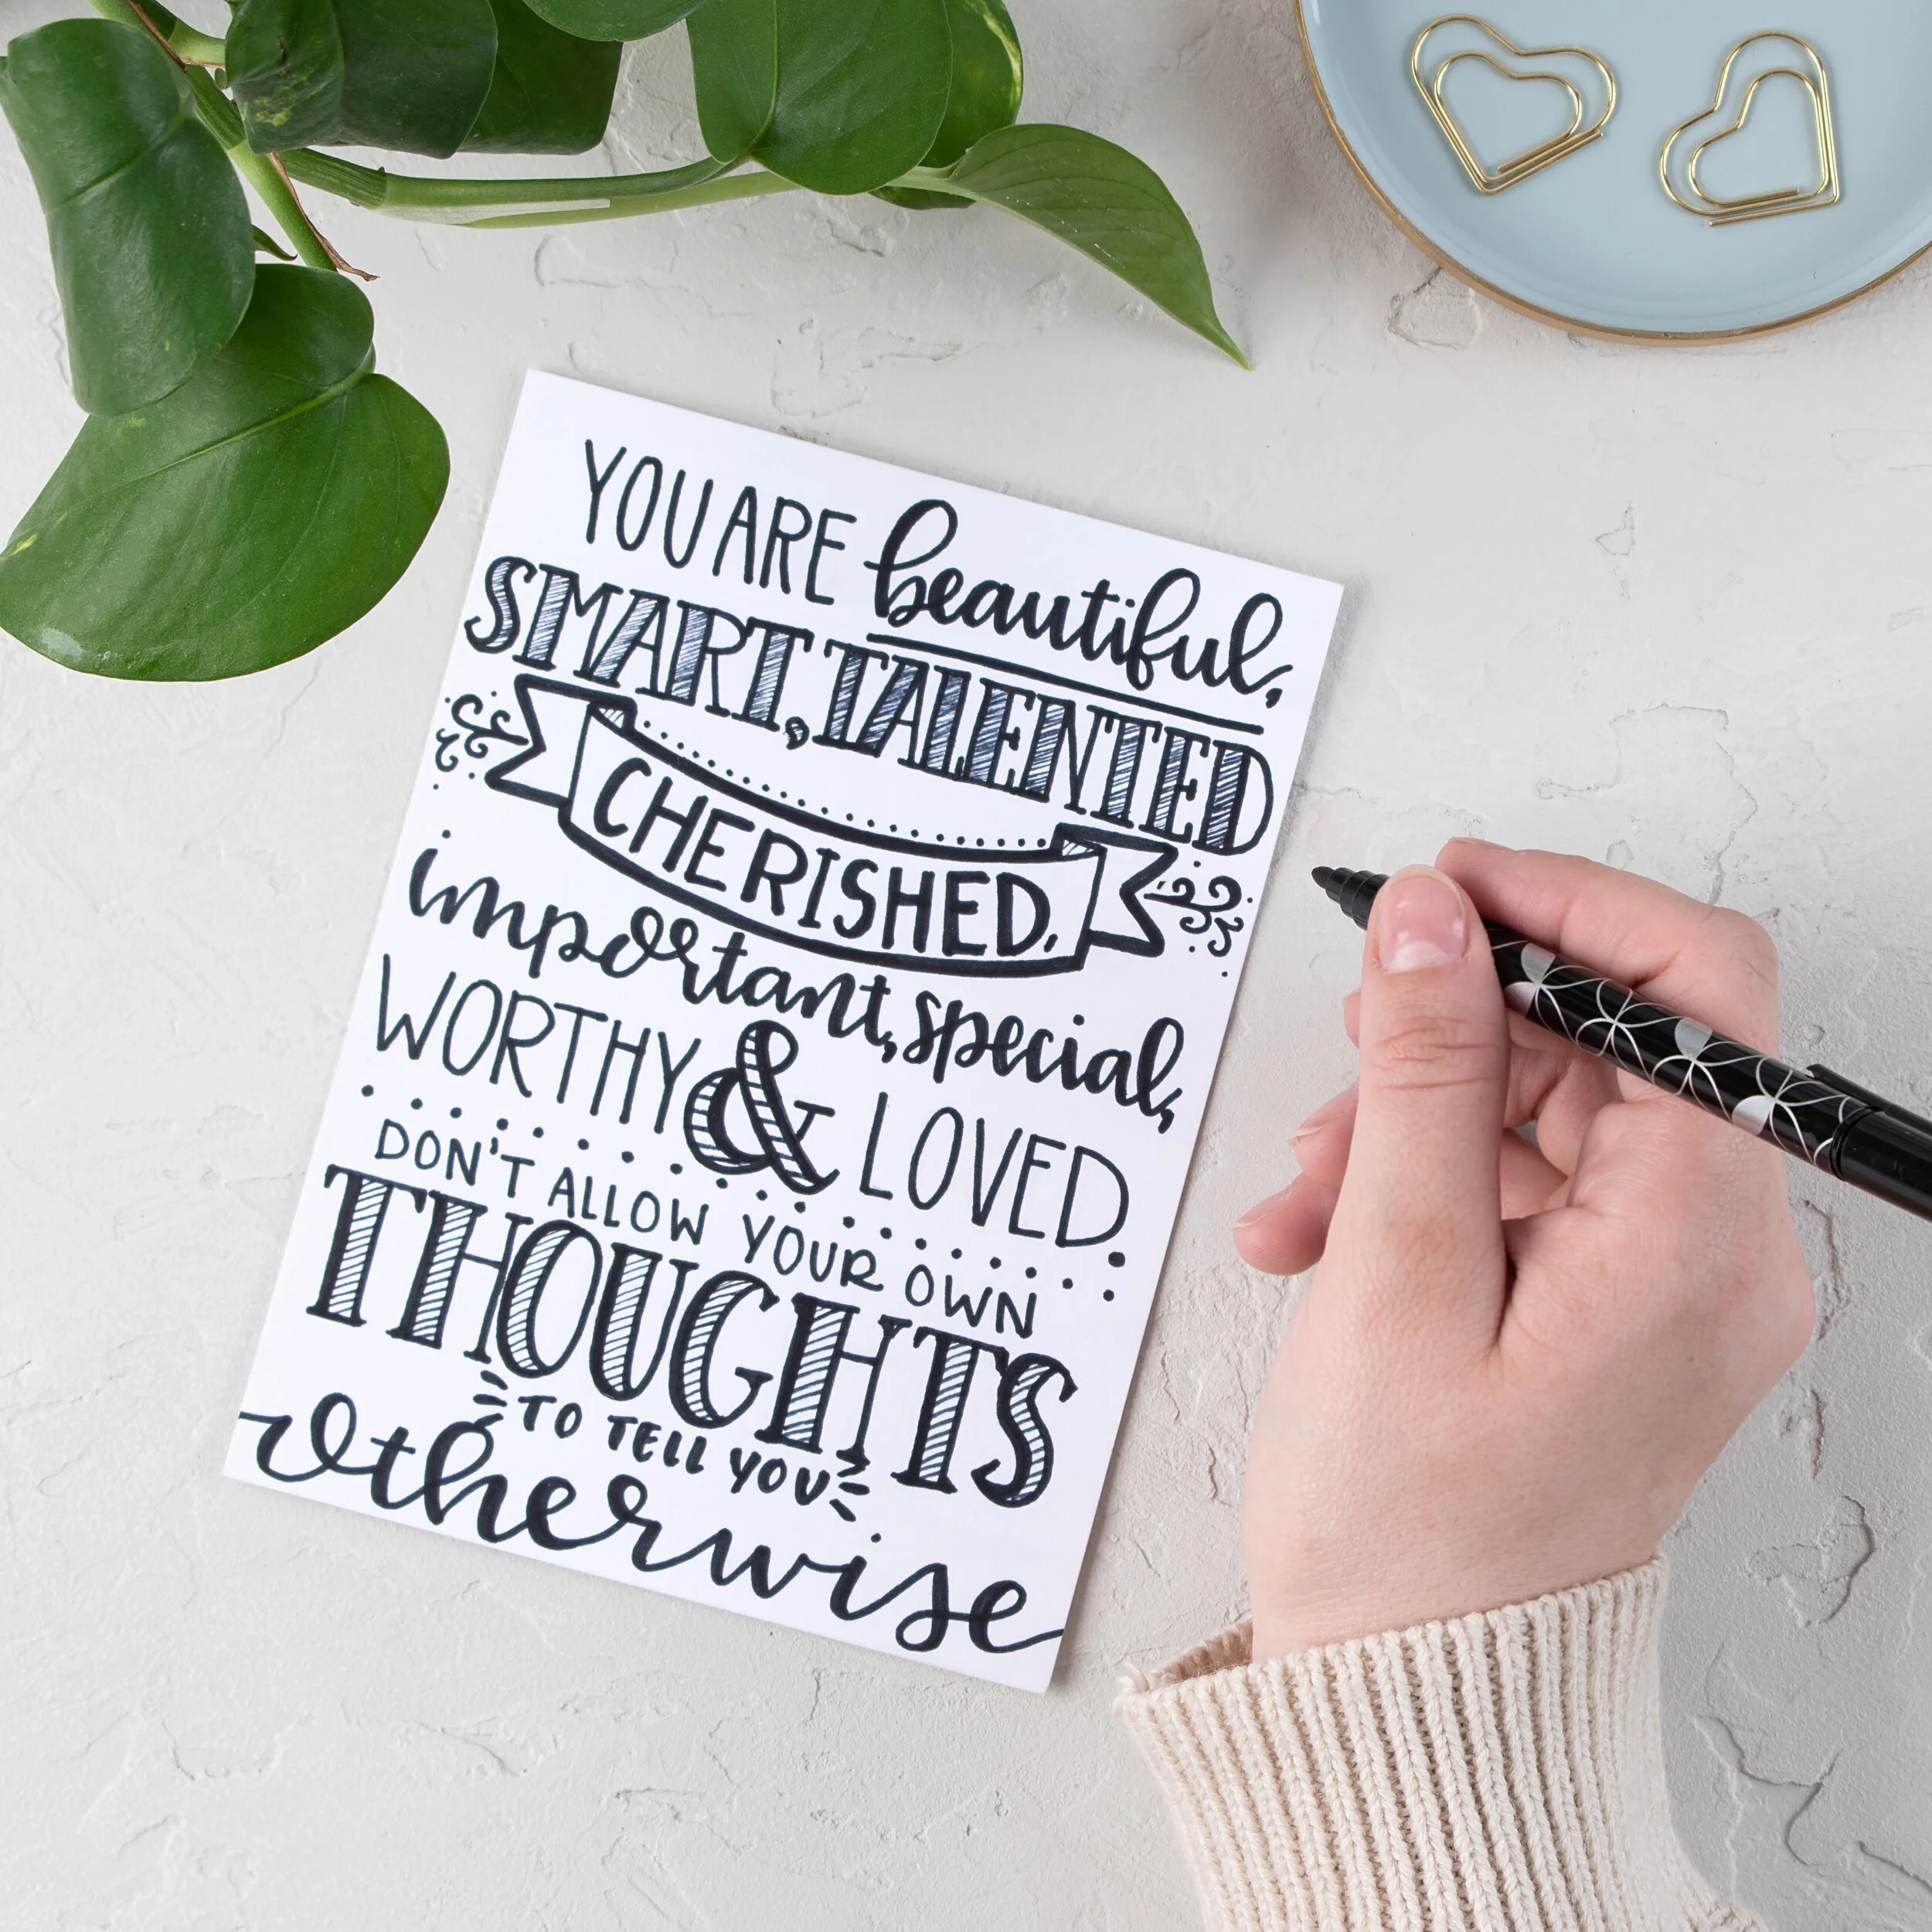 YOU ARE beautiful,
SMART, TALENTED
CHERISHED,
important, special,
WORTHY & LOVED.
DON'T ALLOW YOUR OWN
THOUGHTS
TO TELL YOU
Otherwise